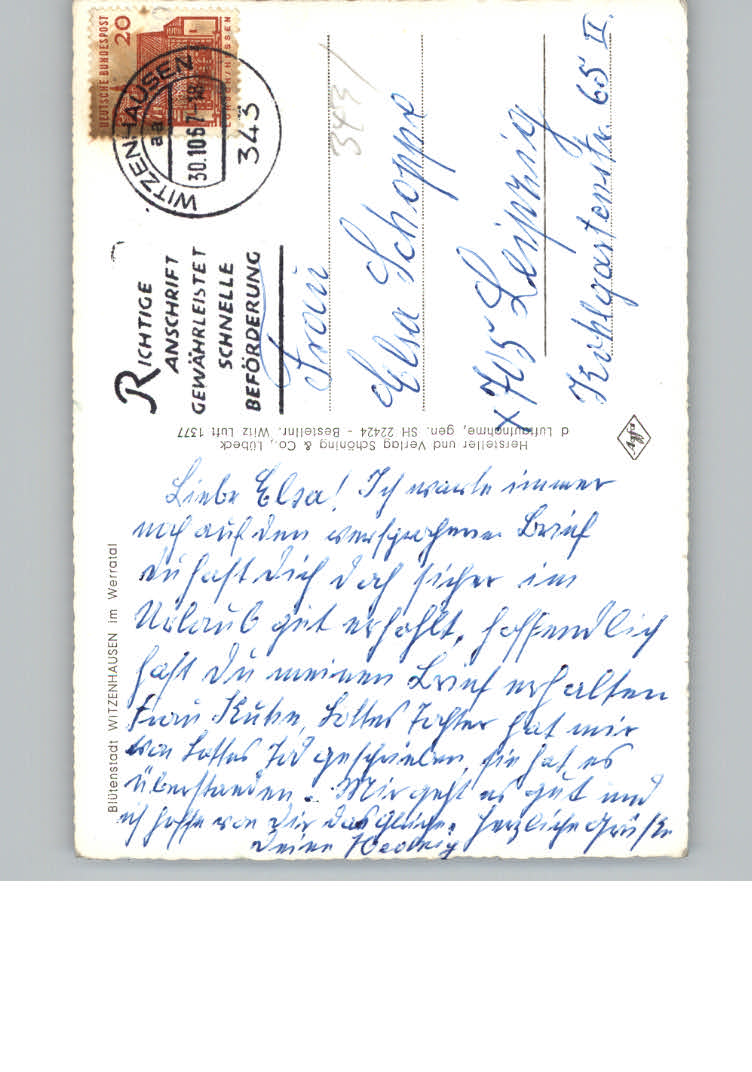 DEUTSCHE BUNDESPOST
20
LORSCH/HESSEN
WITZENHAUSEN 1
aa
30.10.67-18
343
343
RICHTIGE
ANSCHRIFT
GEWÄHRLEISTET
SCHNELLE
BEFÖRDERUNG
Frau
Elsa Schoppe
x 705 Leipzig
Kohlgartenstr. 65 II.
Hersteller und Verlag Schöning & Co., Lübeck
d Luftaufnahme, gen. SH 22424 - Bestellnr. Witz Luft 1377
Agfa
Blütenstadt WITZENHAUSEN im Werratal
Liebe Elsa! Ich warte immer
noch auf den versprochenen Brief
du hast Dich doch sicher im
Urlaub gut erholt, hoffendlich
hast Du meinen Brief erhalten
Frau Kuhn, Lottes Tochter hat mir
von Lottes Tod geschrieben, sie hat es
überstanden. Mir geht es gut und
ich hoffe von Dir das Gleiche. Herzliche Grüße
Deine Hedwig